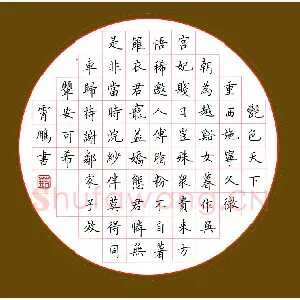 艷色天下
重西施寧久微
朝為越谿女暮作吳
宮妃賤日豈殊衆貴來方
悟稀邀人傅脂粉不自著
羅衣君寵益嬌態君憐無
是非當時浣紗伴莫得同
車歸持謝鄰家子效
顰安可希
霄鵬書
Shufawang.CN